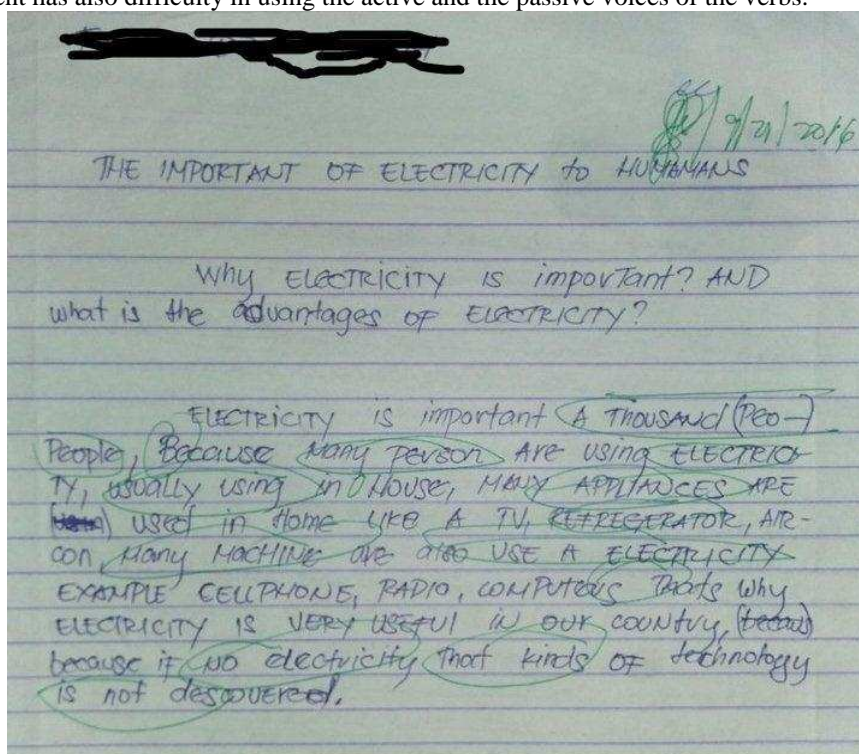 ent has also difficulty in using the active and the passive voices of the verbs.
9/21/2016
THE IMPORTANT OF ELECTRICITY to HUMAMANS
Why ELECTRICITY IS importanT? AND
what is the advantages OF ELECTRICITY?
ELECTRICITY is important A THOUSAND (Peo-)
People, Because Many person Are using ELECTRICI
TY, usually using in House, MANY APPLIANCES ARE
used in Home LIKE A TV, REFREGERATOR, AIR-
CON, Many MACHINE are also USE A ELECTRICITY
EXAMPLE CELLPHONE, RADIO, COMPUTERS Thats Why
ELECTRICITY IS VERY USEFUl in our country, (becaus)
because if NO electricity That kinds OF technology
is not descovered.